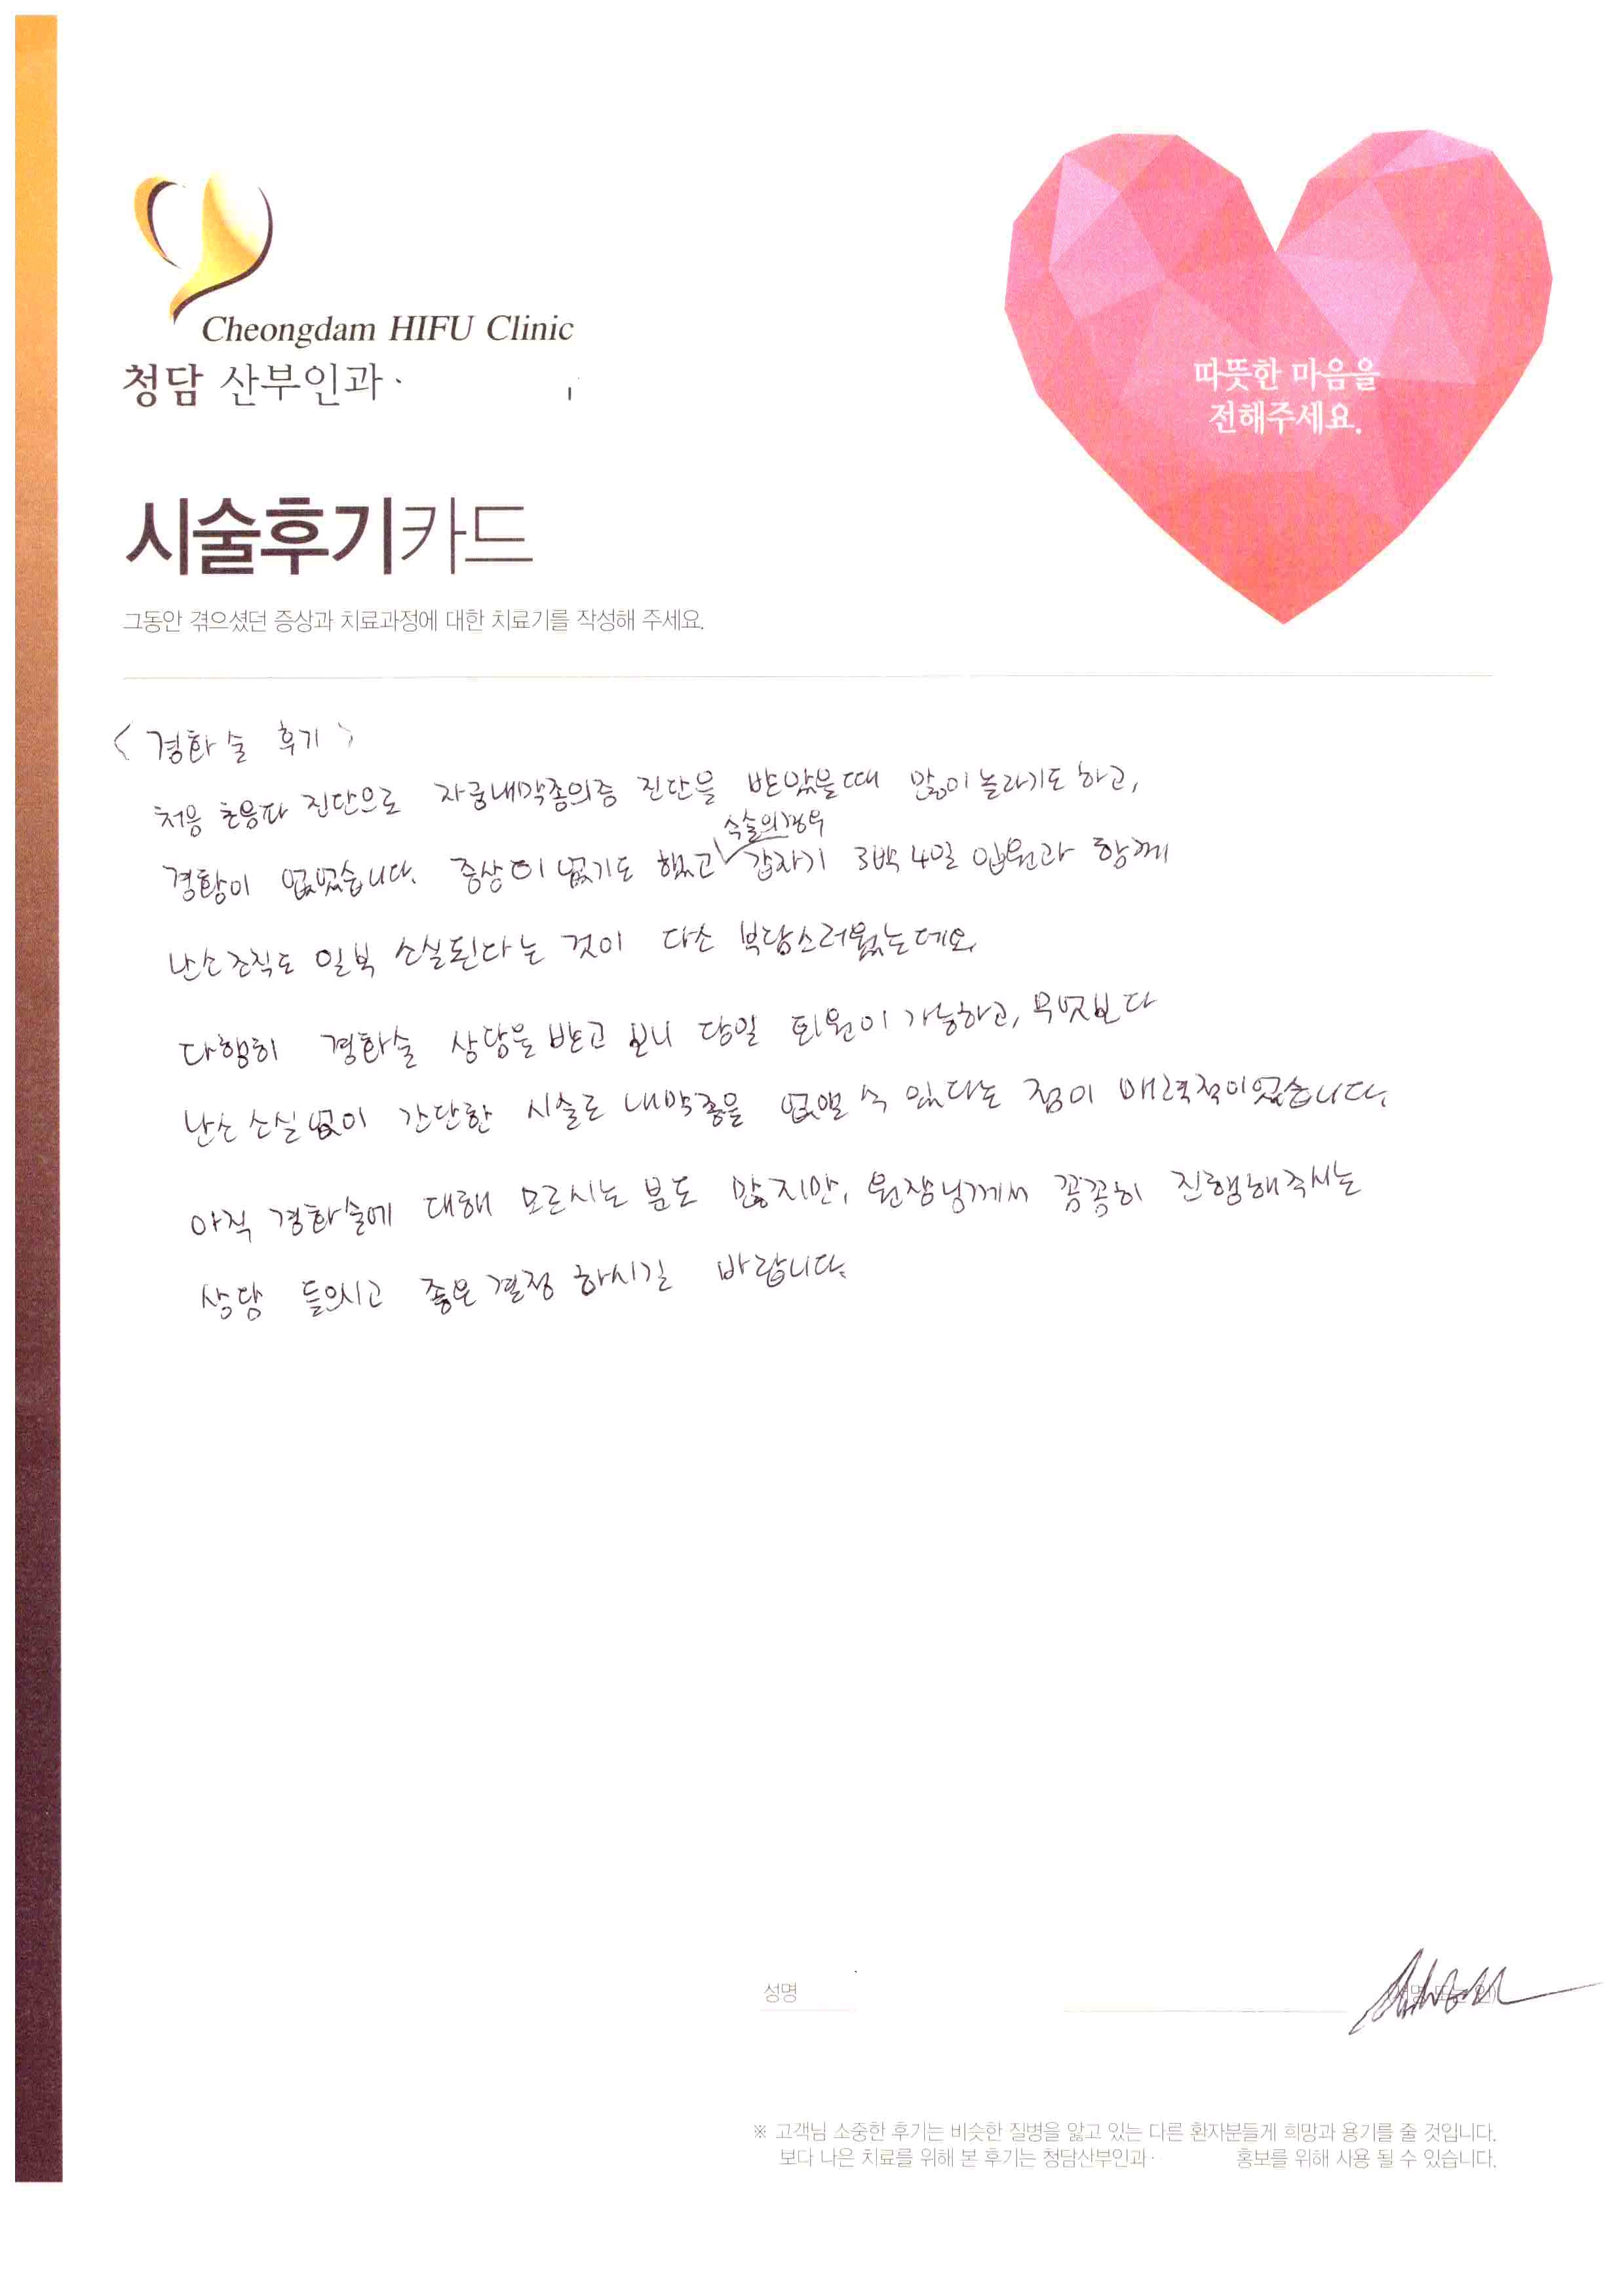 Cheongdam HIFU Clinic
청담 산부인과
따뜻한 마음을
전해주세요.
시술후기카드
그동안 겪으셨던 증상과 치료과정에 대한 치료기를 작성해 주세요.
<경화술 후기>
처음 초음파 진단으로 자궁내막종의증 진단을 받았을때 많이 놀라기도 하고,
경황이 없었습니다. 증상이 없기도 했고 수술의경우 갑자기 3박 4일 입원과 함께
난소조직도 일부 소실된다는 것이 다소 부담스러웠는데요,
다행히 경화술 상담을 받고 보니 당일 퇴원이 가능하고, 무엇보다
난소 소실 없이 간단한 시술로 내막종을 없앨 수 있다는 점이 매력적이었습니다.
아직 경화술에 대해 모르시는 분도 많지만, 원장님께서 꼼꼼히 진행해주시는
상담 들으시고 좋은 결정 하시길 바랍니다.
성명
※ 고객님 소중한 후기는 비슷한 질병을 앓고 있는 다른 환자분들게 희망과 용기를 줄 것입니다.
보다 나은 치료를 위해 본 후기는 청담산부인과 홍보를 위해 사용 될 수 있습니다.